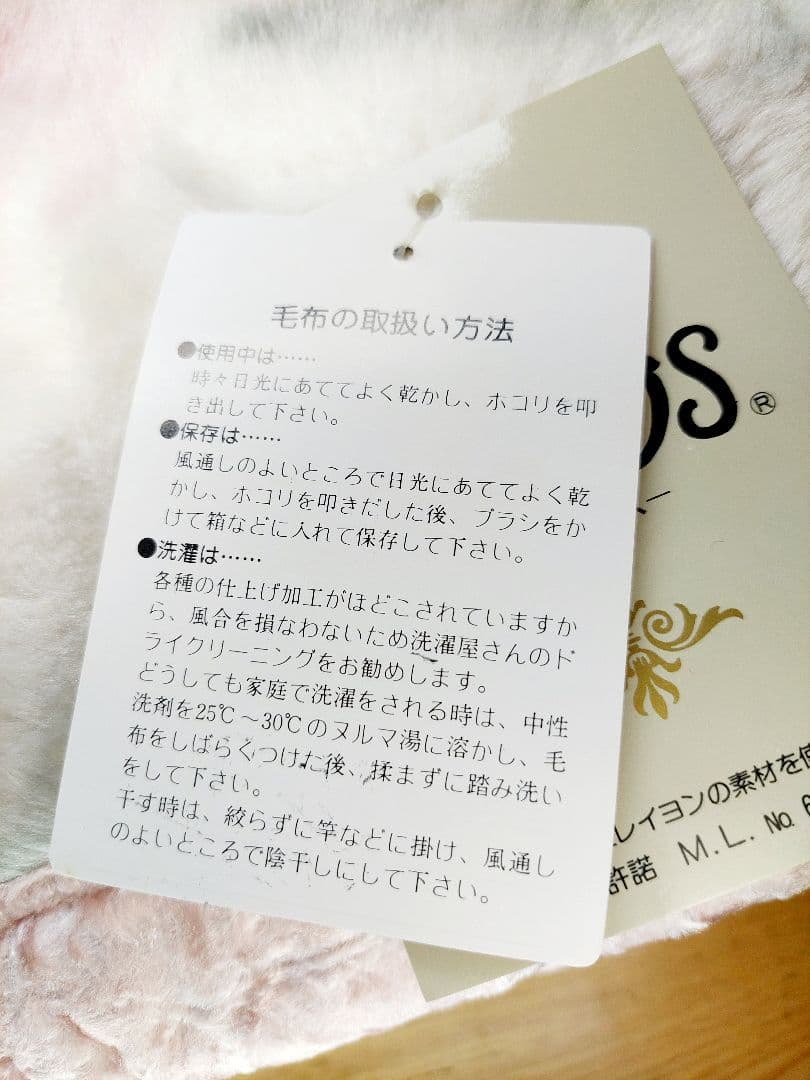 毛布の取扱い方法
●使用中は……
時々日光にあててよく乾かし、ホコリを叩
き出して下さい。
●保存は……
風通しのよいところで日光にあててよく乾
かし、ホコリを叩きだした後、ブラシをか
けて箱などに入れて保存して下さい。
●洗濯は……
各種の仕上げ加工がほどこされていますか
ら、風合を損なわないため洗濯屋さんのド
ライクリーニングをお勧めします。
どうしても家庭で洗濯をされる時は、中性
洗剤を25℃～30℃のヌルマ湯に溶かし、毛
布をしばらくつけた後、揉まずに踏み洗い
をして下さい。
干す時は、絞らずに竿などに掛け、風通し
のよいところで陰干しにして下さい。
S®
レイヨンの素材を使
許諾 M.L. No. 6